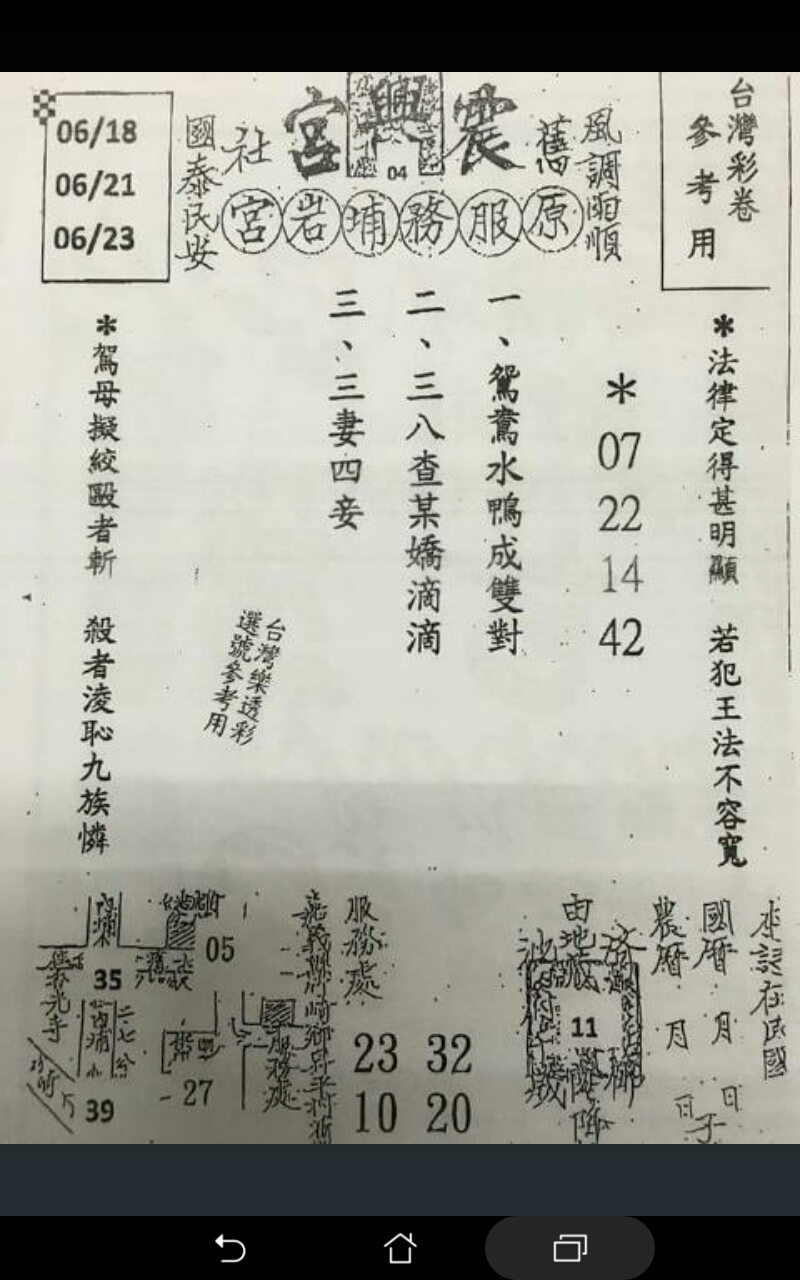 台灣彩卷
參考用
風調雨順
舊
震興宮
04
社
國泰民安
原服務埔岩宮
06/18
06/21
06/23
*法律定得甚明顯 若犯王法不容寬
*
07
22
14
42
一、鴛鴦水鴨成雙對
二、三八查某嬌滴滴
三、三妻四妾
台灣樂透彩
選號參考用
*駕母擬絞毆者斬 殺者淩恥九族憐
國曆 月 日
農曆 月 日
11
服務處
23 32
10 20
服務處
05
27
35
39
內埔